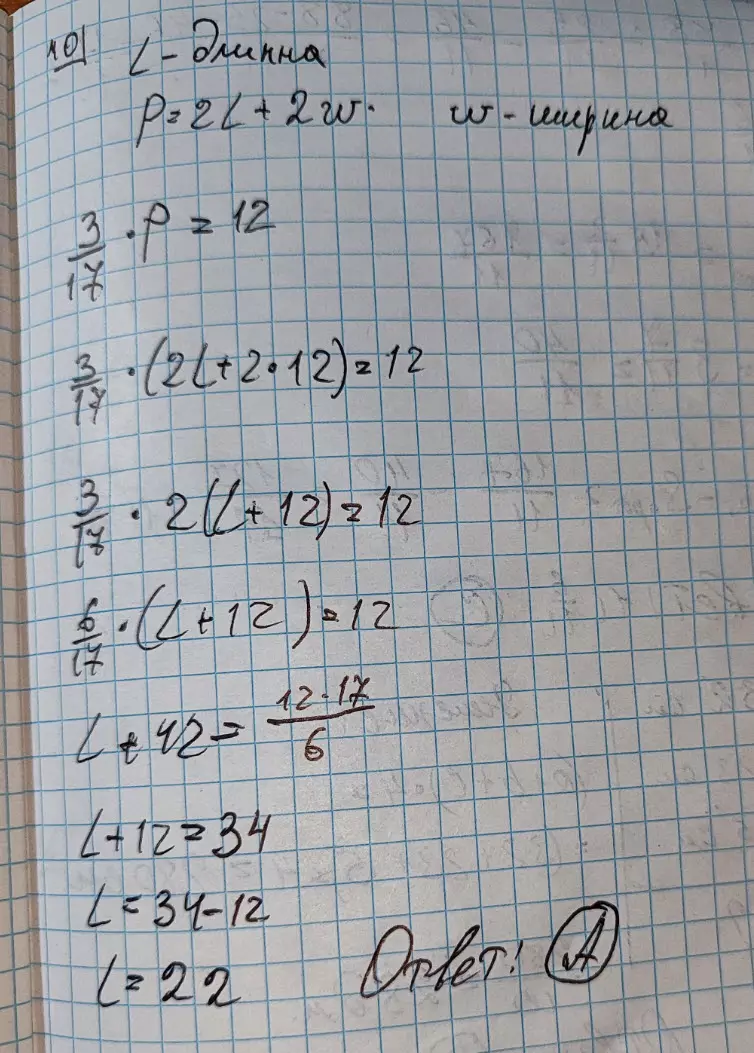 10) L - длинна
P = 2L + 2w. w - ширина
3/17 · P = 12
3/17 · (2L + 2 · 12) = 12
3/17 · 2(L + 12) = 12
6/17 · (L + 12) = 12
L + 12 = 12 · 17/6
L + 12 = 34
L = 34 - 12
L = 22
Ответ: A